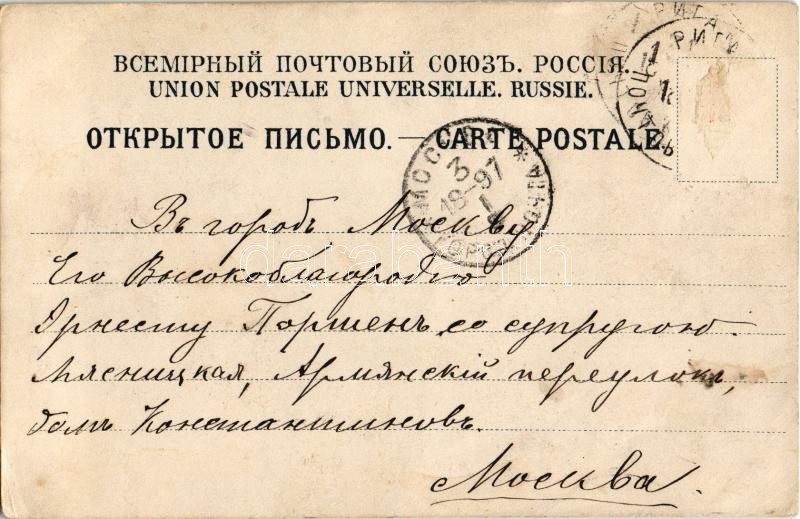 ВСЕМІРНЫЙ ПОЧТОВЫЙ СОЮЗЪ. РОССІЯ.
UNION POSTALE UNIVERSELLE. RUSSIE.
ОТКРЫТОЕ ПИСЬМО. — CARTE POSTALE
РИГА
МОСКВА
3
18-97
I
ГОРОД
Въ городъ Москву
Его Высокоблагородію
Эрнесту Поршенъ со супругою.
Мясницкая, Армянскій переулокъ,
домъ Константиновъ.
Москва.
darabanth